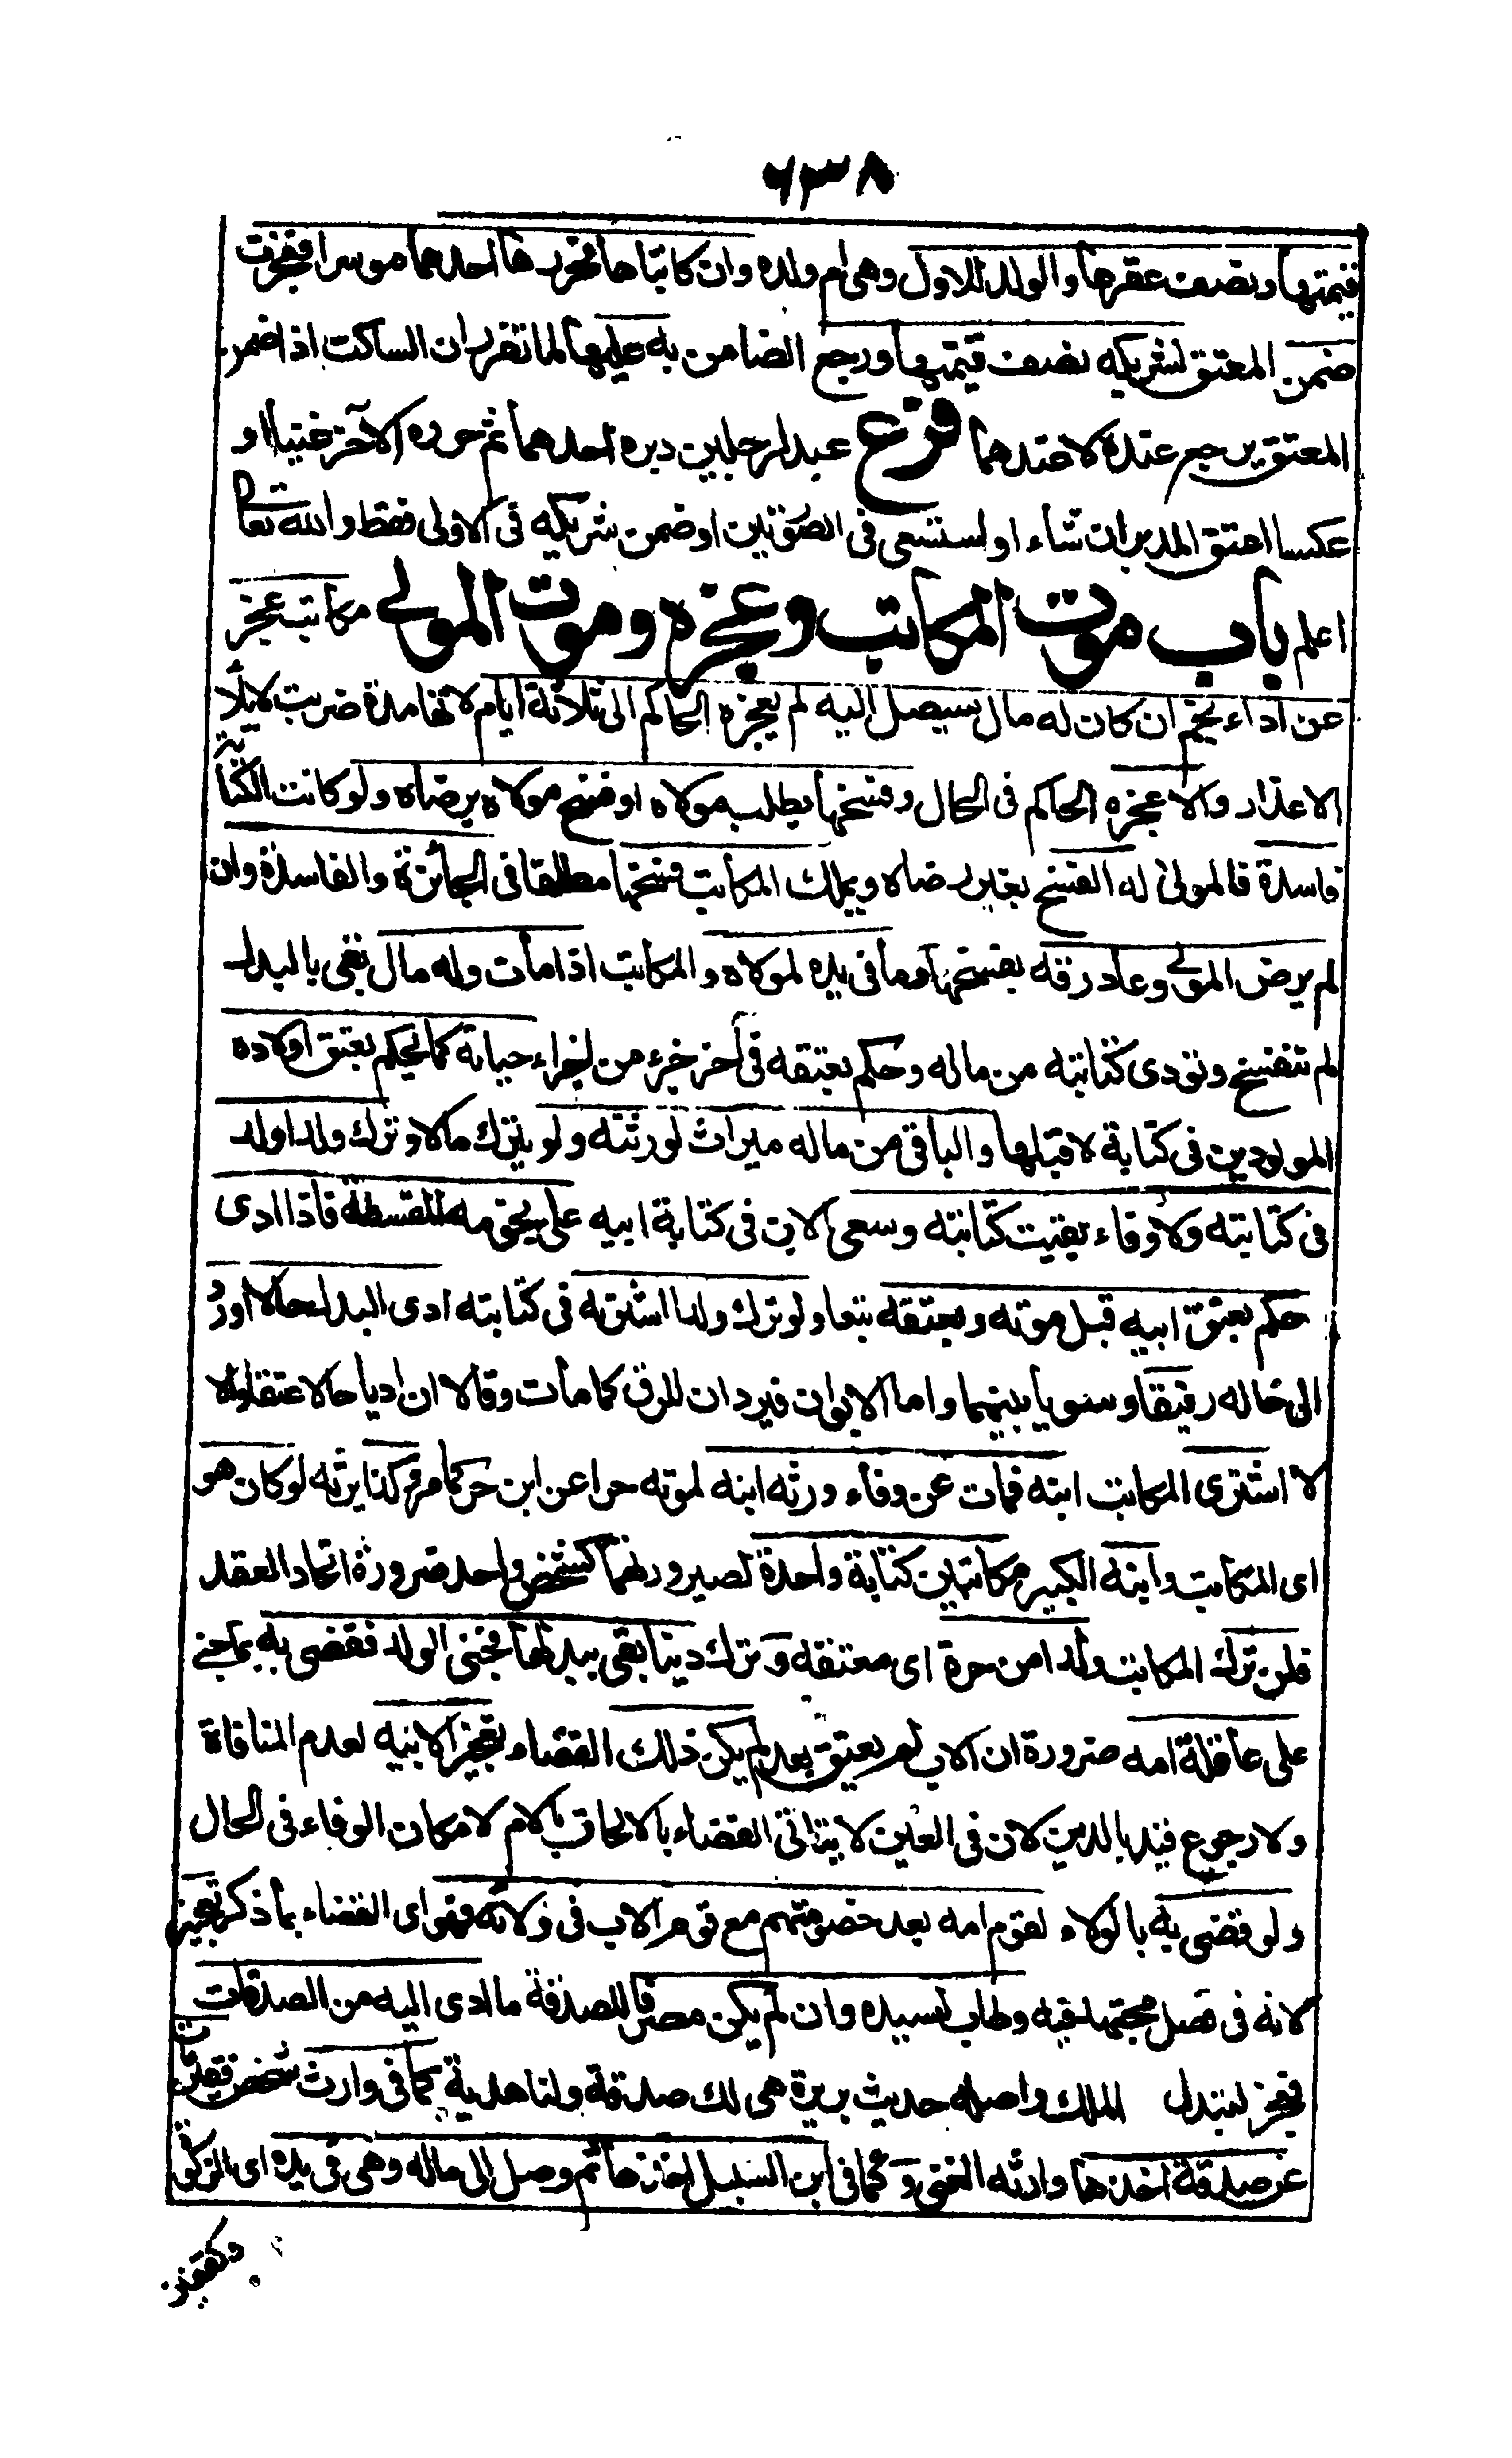 ٦٣٨
قيمتها ونصف عقرها والولد للاول وهى ام ولده وان كاتباها فحررها احدهما موسرا فعجزت
ضمن المعتق لشريكه نصف قيمتها ورجع الضامن به عليها لما تقرر ان الساكت اذا ضمن
المعتق يرجع عنده لا عندهما فرع عبد لرجلين دبره احدهما ثم حرره الآخر غنيا او
عكسا اعتق المدبر ان شاء او استسعى فى الصورتين او ضمن شريكه فى الاولى فقط والله تعالى
اعلم باب موت المكاتب وعجزه وموت المولى مكاتب عجز
عن اداء نجم ان كان له مال سيصل اليه لم يعجزه الحاكم الى ثلاثة ايام لانها مدة ضربت لابلاء
الاعذار والا عجزه الحاكم فى الحال وفسخها بطلب مولاه او فسخ مولاه برضاه ولو كانت الكتابة
فاسدة فالمولى له الفسخ بغير رضاه ويملك المكاتب فسخها مطلقا فى الجائزة والفاسدة وان
لم يرض المولى وعاد رقه بفسخها وما فى يده لمولاه والمكاتب اذا مات وله مال يفى بالبدل
لم تنفسخ وتؤدى كتابته من ماله وحكم بعتقه فى آخر جزء من اجزاء حياته كما يحكم بعتق اولاده
المولودين فى كتابة لا قبلها والباقى من ماله ميراث لورثته ولو يترك مالا وترك ولدا ولد
فى كتابته ولا وفاء بقيت كتابته وسعى الابن فى كتابة ابيه على نجومه المقسطة فاذا ادى
حكم بعتق ابيه قبل موته وبعتقه تبعا ولو ترك ولدا اشتراه فى كتابته ادى البدل حالا او رد
الى حاله رقيقا وسويا بينهما واما الابوان فيردان للرق كما مات وقالا ان اديا حالا عتقا والا
لا اشترى المكاتب ابنه فمات عن وفاء ورثه ابنه لموته حرا عن ابن حر كما مر وكذا يرثه لو كان هو
اى المكاتب وابنه الكبير مكاتبين كتابة واحدة لصيرورتهما كشخص واحد ضرورة اتحاد العقد
فلن ترك المكاتب ولدا من حرة اى معتقه وترك دينا يفى ببدلها فجنى الولد فقضى به بما جنى
على عاقلة امه ضرورة ان الاب لم يعتق بعد لم يكن ذلك القضاء تعجيزا لابيه لعدم المنافاة
ولا رجوع قيد بالدين لان فى العين لا يتأتى القضاء بالالحاق بالام لامكان الوفاء فى الحال
ولو قضى به بالولاء لقوم امه بعد خصومتهم مع قوم الاب فى ولائه فهو اى القضاء بما ذكر تعجيز
لانه فى فصل مجتهد فيه وطاب لسيده وان لم يكن مصرفا للصدقة ما ادى اليه من الصدقات
فعجز لتبدل الملك واصله حديث بريرة هى لك صدقة ولنا هدية كما فى وارث شخص فقير مات
عن صدقة اخذها وارثه الغنى وكما فى ابن السبيل اخذها ثم وصل الى ماله وهى فى يده اى الزكوة
وكفقير